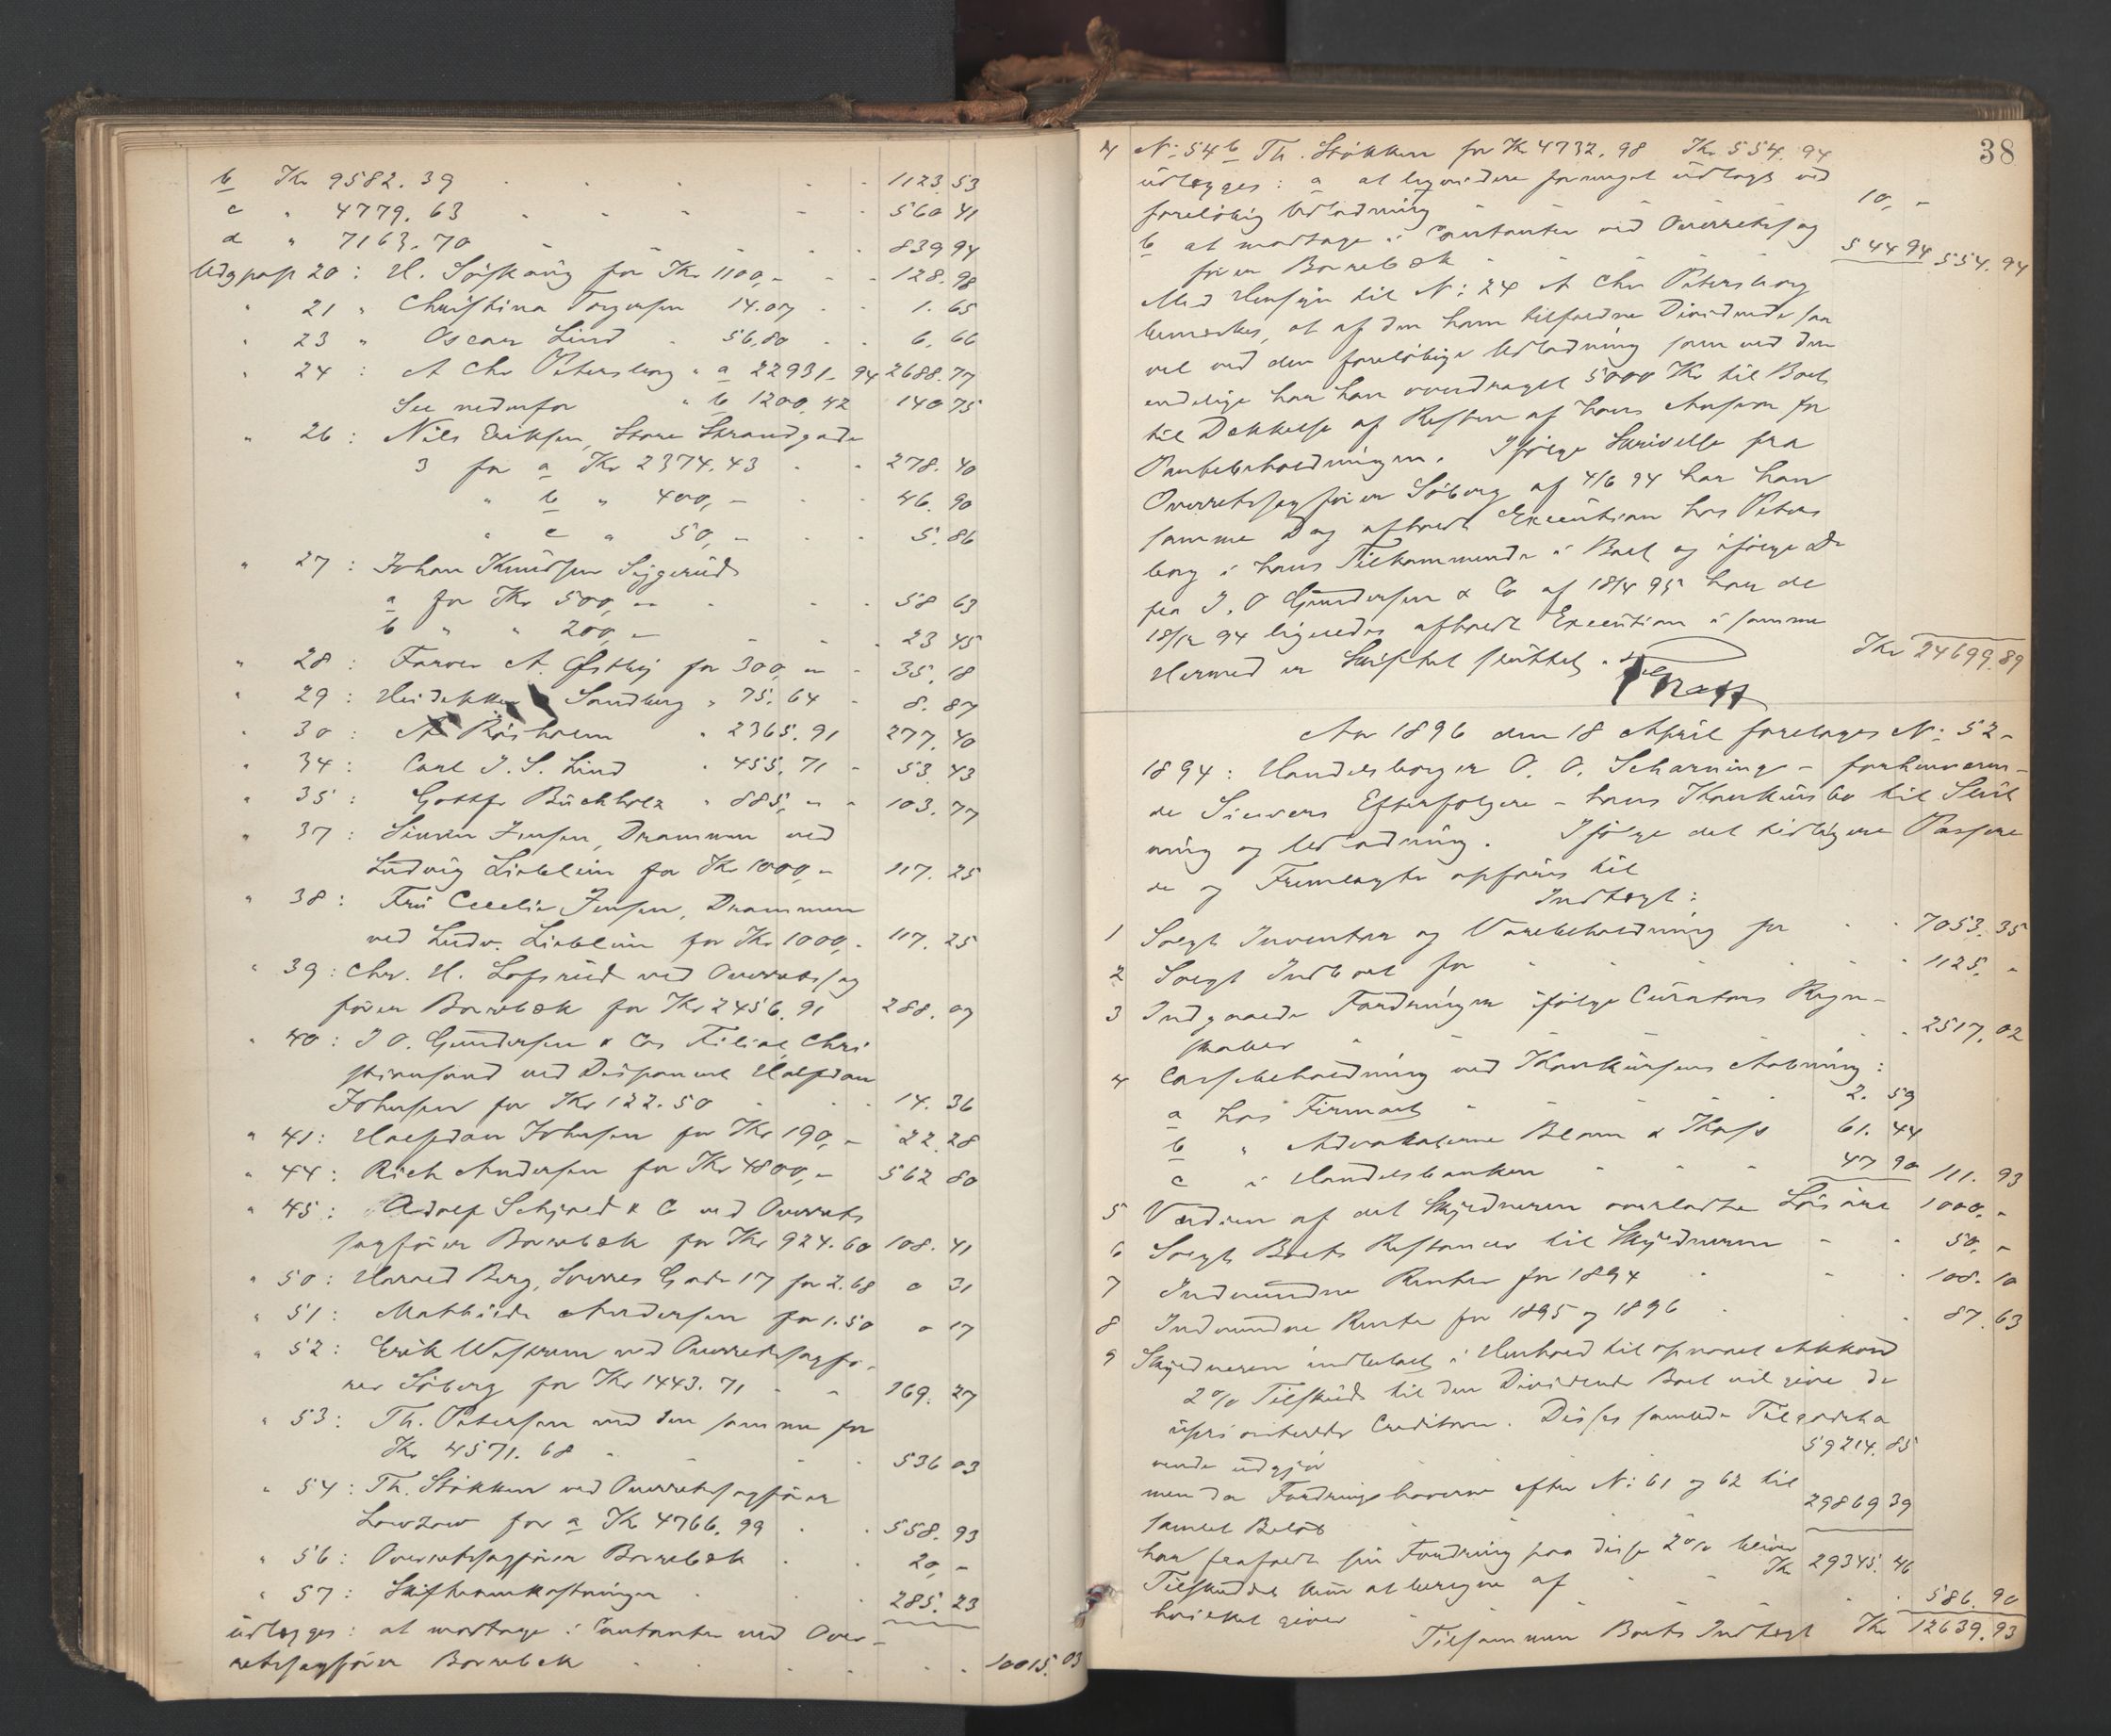 b Kr 9582.39 - - - - - 1123.53
c " 4779.63 - - - - - 560 41
d " 7163.70 - - - - 839 94
Udg post 20: H. Söiskang for Kr 1100,- - - 128.98
" 21 " Christina Torgersen 14.07 - - 1.65
" 23 " Oscar Lind - 56,80 - - 6.66
" 24 : A Chr Petersborg " a 22931-94 2688.77
See nedenfor " b 1200,42 140 75
" 26 : Nils Eriksen, Store Strandgade
3 for a Kr 2374.43 - - 278.40
" b " 400,- - - 46.90
" c " 50,- - - 5.86
" 27 : Johan Knudsen Siggerud
a for Kr 500,- - - - 58 63
b " " 200,- - - - 23 45
" 28 : Farver A. Østby for 300,- - 35.18
" 29 : Sandberg " 75.64 - 8.87
" 30 : A Röisholm " 2365.91 277.40
" 34 : Carl J. S. Lind " 455.71 - 53.43
" 35 : Gottfr Buchholz " 885,- - 103.77
" 37 : Jensen, Drammen ved
Ludvig Lieblein for Kr 1000,- 117.25
" 38 : Fru Cecelie Jensen, Drammen
ved Ludv. Lieblein for Kr 1000,- 117.25
" 39 : Chr. H. Lofsrud ved Overretssag
fører Borrebæk for Kr 2456.91 288.07
" 40 : J O. Gundersen & Cos Filial Chri
stiansund ved Disponent Halfdan
Johnsen for Kr 122.50 - - - 14.36
" 41 : Halfdan Johnsen for Kr 190,- 22.28
" 44 : Rich Andersen for Kr 4800,- 562 80
" 45 : Adolf Schjeld & Co ved Overrets
sagfører Borrebæk for Kr 924.60 108.41
" 50 : Harald Berg, Sverres Gade 17 for 2.68 0 31
" 51 : Mathilde Andersen for 1.50 0 17
" 52 : Erik ved Overretssagfø-
rer Söberg for Kr 1443.71 - - 169.27
" 53 : Th. Petersen ved den samme for
Kr 4571.68 - - - 536 03
" 54 : Th. Stökken ved Overretssagfører
Lowzow for a Kr 4766.99 - - 558.93
" 56 : Overretssagfører Borrebæk - - 20,-
" 57 : Skifteomkostninger - - 285.23
udlægges: at modtage i Contanter ved Over-
retssagfører Borrebæk - - - - - 10015.03
38
4 No 54 b Th. Stökken for Kr 4732.98 Kr 554.94
udlægges: a at liqvidere forlods udlagt ved
foreløbig Udlodning - - 10,-
b at modtage i Contanter ved Overretssag
fører Borrebæk - - 544 94 554.94
Med Hensyn til No 24 A Chr Petersborg
bemærkes, at af den ham tilfaldne Dividende saa
vel ved den foreløbige Udlodning som ved den
endelige har han overdraget 5000 Kr til Boet
til Dækkelse af Resten af hans Ansvar for
Pantebeholdningen. Ifølge Skrivelse fra
Overretssagfører Söberg af 4/6 94 har han
samme Dag afholdt Execution hos Peters
borg i hans Tilkommende i Boet og ifølge Do
fra J. O Gundersen & Co af 18/4 95 har de
18/12 94 ligeledes afholdt Execution i samme
Hermed er Skiftet sluttet. Kr 24699.89
Aar 1896 den 18 April foretoges No 52-
1894: Handelsborger O. O. Scharning - forhenværen-
de Sievers Efterfølgere - hans Konkursbo til Slut
ning og Udlodning. Ifølge det tidligere Passere
de og Fremlagte opføres til
Indtægt:
1 Solgt Inventar og Varebeholdning for - - 7053.35
2 Solgt Indbo for - - - - 1125.-
3 Indgaaede Fordringer ifølge Curators Regn-
skaber - - - 2517.02
4 Cassebeholdning ved Konkursens Aabning:
a hos Firmaet - - - 2.59
b " Advokaterne Blom & - 61.44
c i Handelsbanken - - - 47 90 111.93
5 Værdien af det Skyldneren overladte Løsøre 1000,-
6 Solgt Boets Restancer til Skyldneren - - 50,-
7 Indvundne Renter for 1894 - - - 108.10
8 Indvundne Renter for 1895 og 1896 - - 87.63
9 Skyldneren indbetalt i Henhold til opnaaet Akkord
2% Tilskud til den Dividende Boet vil give de
uprioriterede Creditorer. Disses samlede Tilgodeha
vende udgjør 59214.85
men da Fordringshaverne efter No 61 og 62 til
samlet Beløb - - 29869 39
har frafaldt sin Fordring paa disse 2% bliver
Tilskuddet kun at beregne af - - Kr 29345.46
hvilket giver - - - - 586.90
Tilsammen Boets Indtægt Kr 12639.93